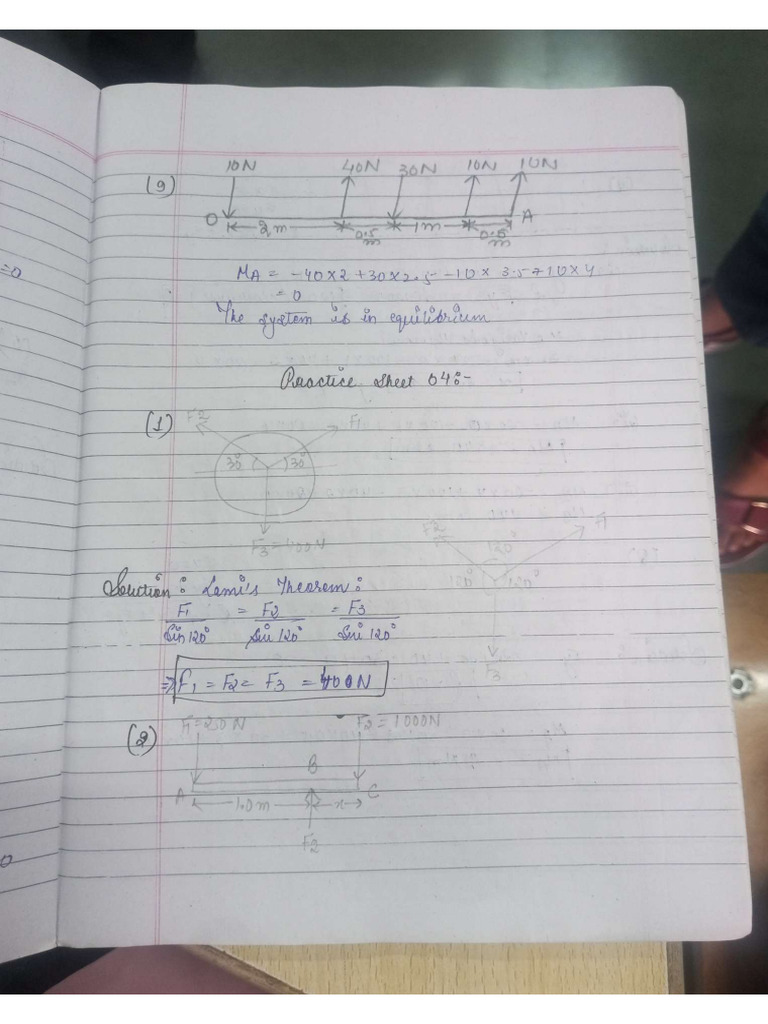 =0
(9)
10N 40N 30N 10N 10N
O 2m 0.5 m 1m 0.5 m A
MA = -40×2 +30×2.5 -10× 3.5+10×4
= 0
The system is in equilibrium
Practice Sheet 04:-
(1)
F2 F1
30° 30°
F3=400N
F2 F1
120°
120° 120°
F3
Solution: Lami's Theorem:
F1 = F2 = F3
Sin120° Sin120° Sin120°
⇒ F1 = F2 = F3 = 400N
(2)
F2=1000N
B
A 1.0m x C
F2